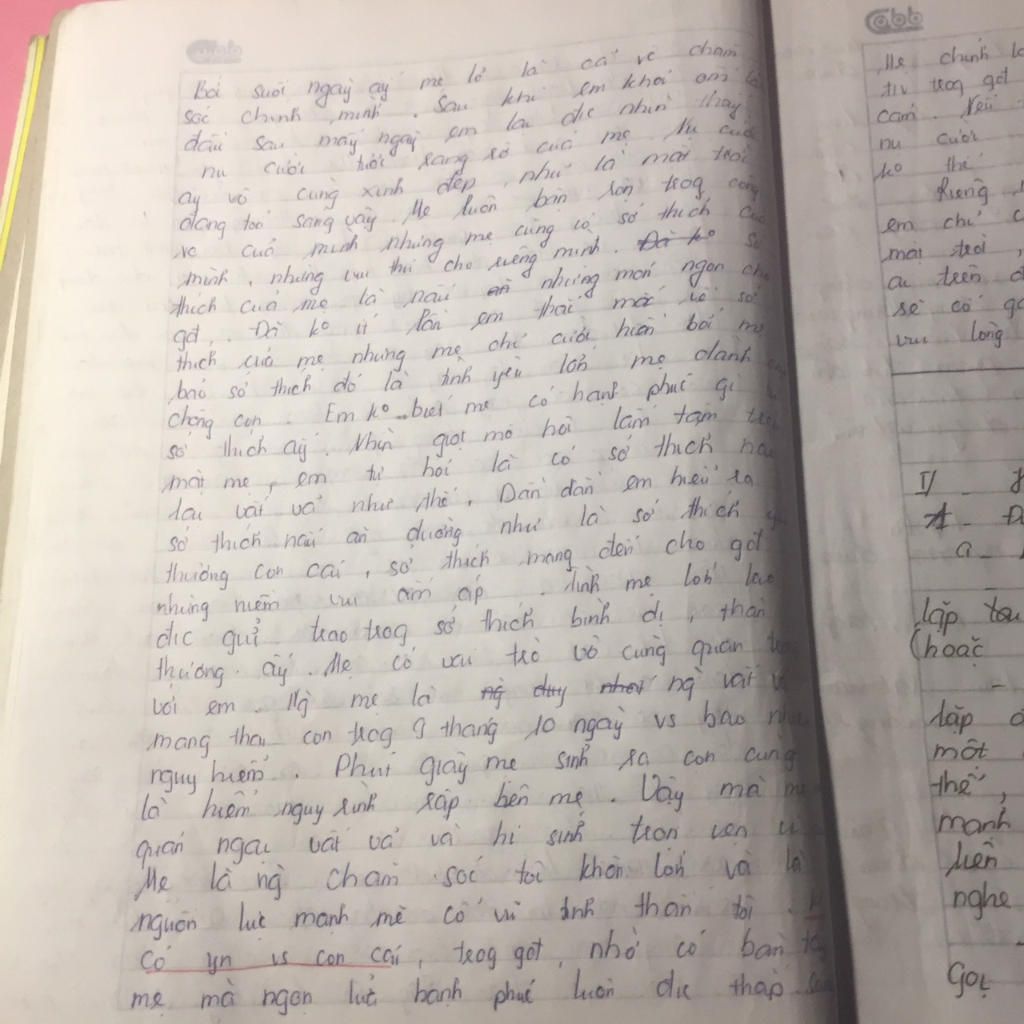 Bởi suốt ngày ấy mẹ lo là cả về chăm
sóc chính mình. Sau khi em khỏi ốm
đầu sau mấy ngày em lại đc nhìn thấy
nụ cười tươi sáng rõ của mẹ. Nụ cười
ấy vô cùng xinh đẹp, như là mặt trời
đang toả sáng vậy. Mẹ luôn bận rộn trog công
việc của mình nhưng mẹ cũng có sở thích của
mình, những thú cho riêng mình. Đã ko sở
thích của mẹ là nấu ăn những món ngon cho
gđ. Đã ko ít lần em thắc mắc về sở
thích của mẹ nhưng mẹ chỉ cười hiền bởi mẹ
bảo sở thích đó là tình yêu lớn mẹ dành
chồng con. Em ko biết mẹ có hạnh phúc gì
sở thích ấy. Nhìn giọt mồ hôi lấm tấm trên
mặt mẹ, em tự hỏi là có sở thích nào
lại vất vả như thế. Dần dần em hiểu ra
sở thích nấu ăn dường như là sở thích
thương con cái, sở thích mang đến cho gđ
những niềm vui ấm áp. Tình mẹ lớn lao
đc gửi trao trog sở thích bình dị, thân
thương ấy. Mẹ có vai trò vô cùng quan trọng
với em. Ng mẹ là ng duy nhất ng vất vả
mang thai con trog 9 tháng 10 ngày vs bao nhiêu
nguy hiểm. Phút giây mẹ sinh ra con cũng
là hiểm nguy rình rập bên mẹ. Vậy mà mẹ
quản ngại vất vả và hi sinh trọn vẹn
Mẹ là ng chăm sóc tôi khôn lớn và là
nguồn lực mạnh mẽ cổ vũ tinh thần tôi.
Có yn vs con cái, trog gđ, nhờ có bàn tay
mẹ mà ngọn lửa hạnh phúc luôn đc thắp sáng
Mẹ chính là
trog gđ
cảm. Nếu
nụ cười
ko thể
Riêng
em chỉ
mặt trời,
ai trên
sẽ cố gắ
vui lòng
II -
A - Đ
a -
lặp từ
(hoặc
-
lặp
một
thể,
mạnh
liên
nghe
Gọi